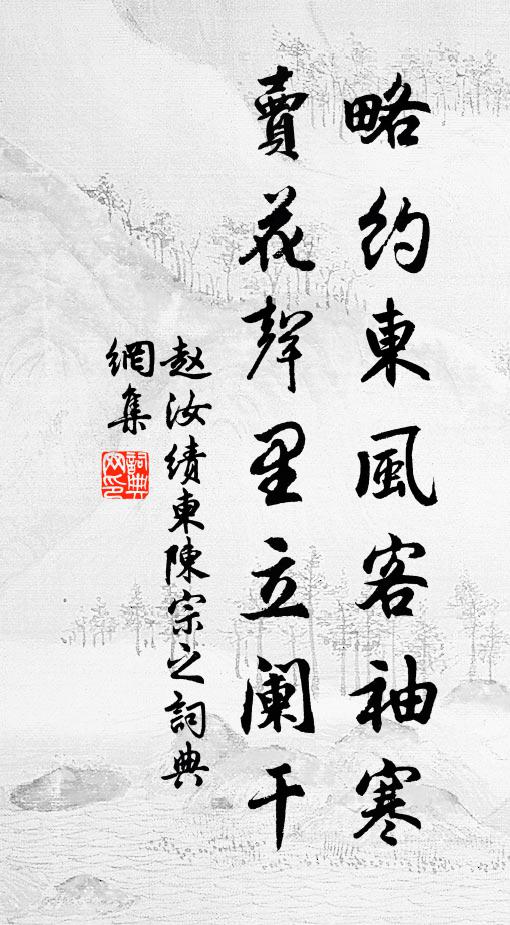 略约東風客袖寒
賣花聲里立阑干
赵汝绩東陳宗之詞典
網集
詞典網印